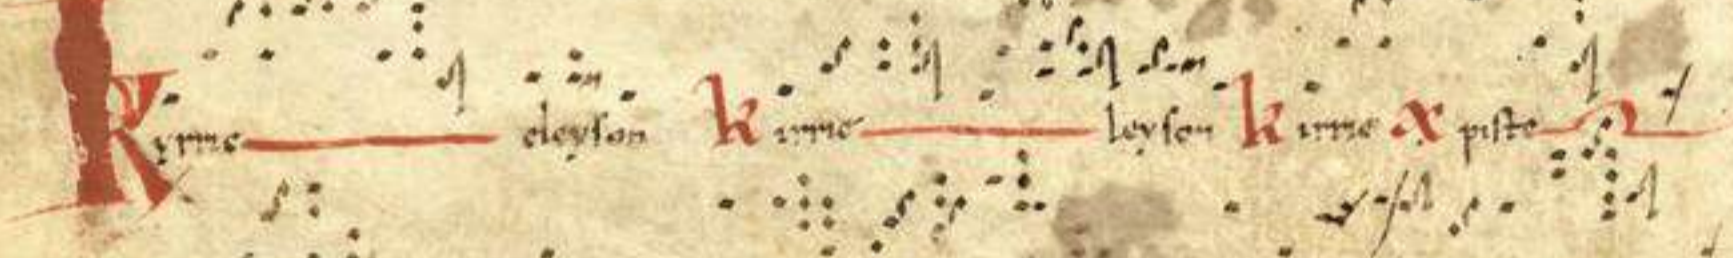 Kyrrie eleyson kirrie leyson kirrie xpiste